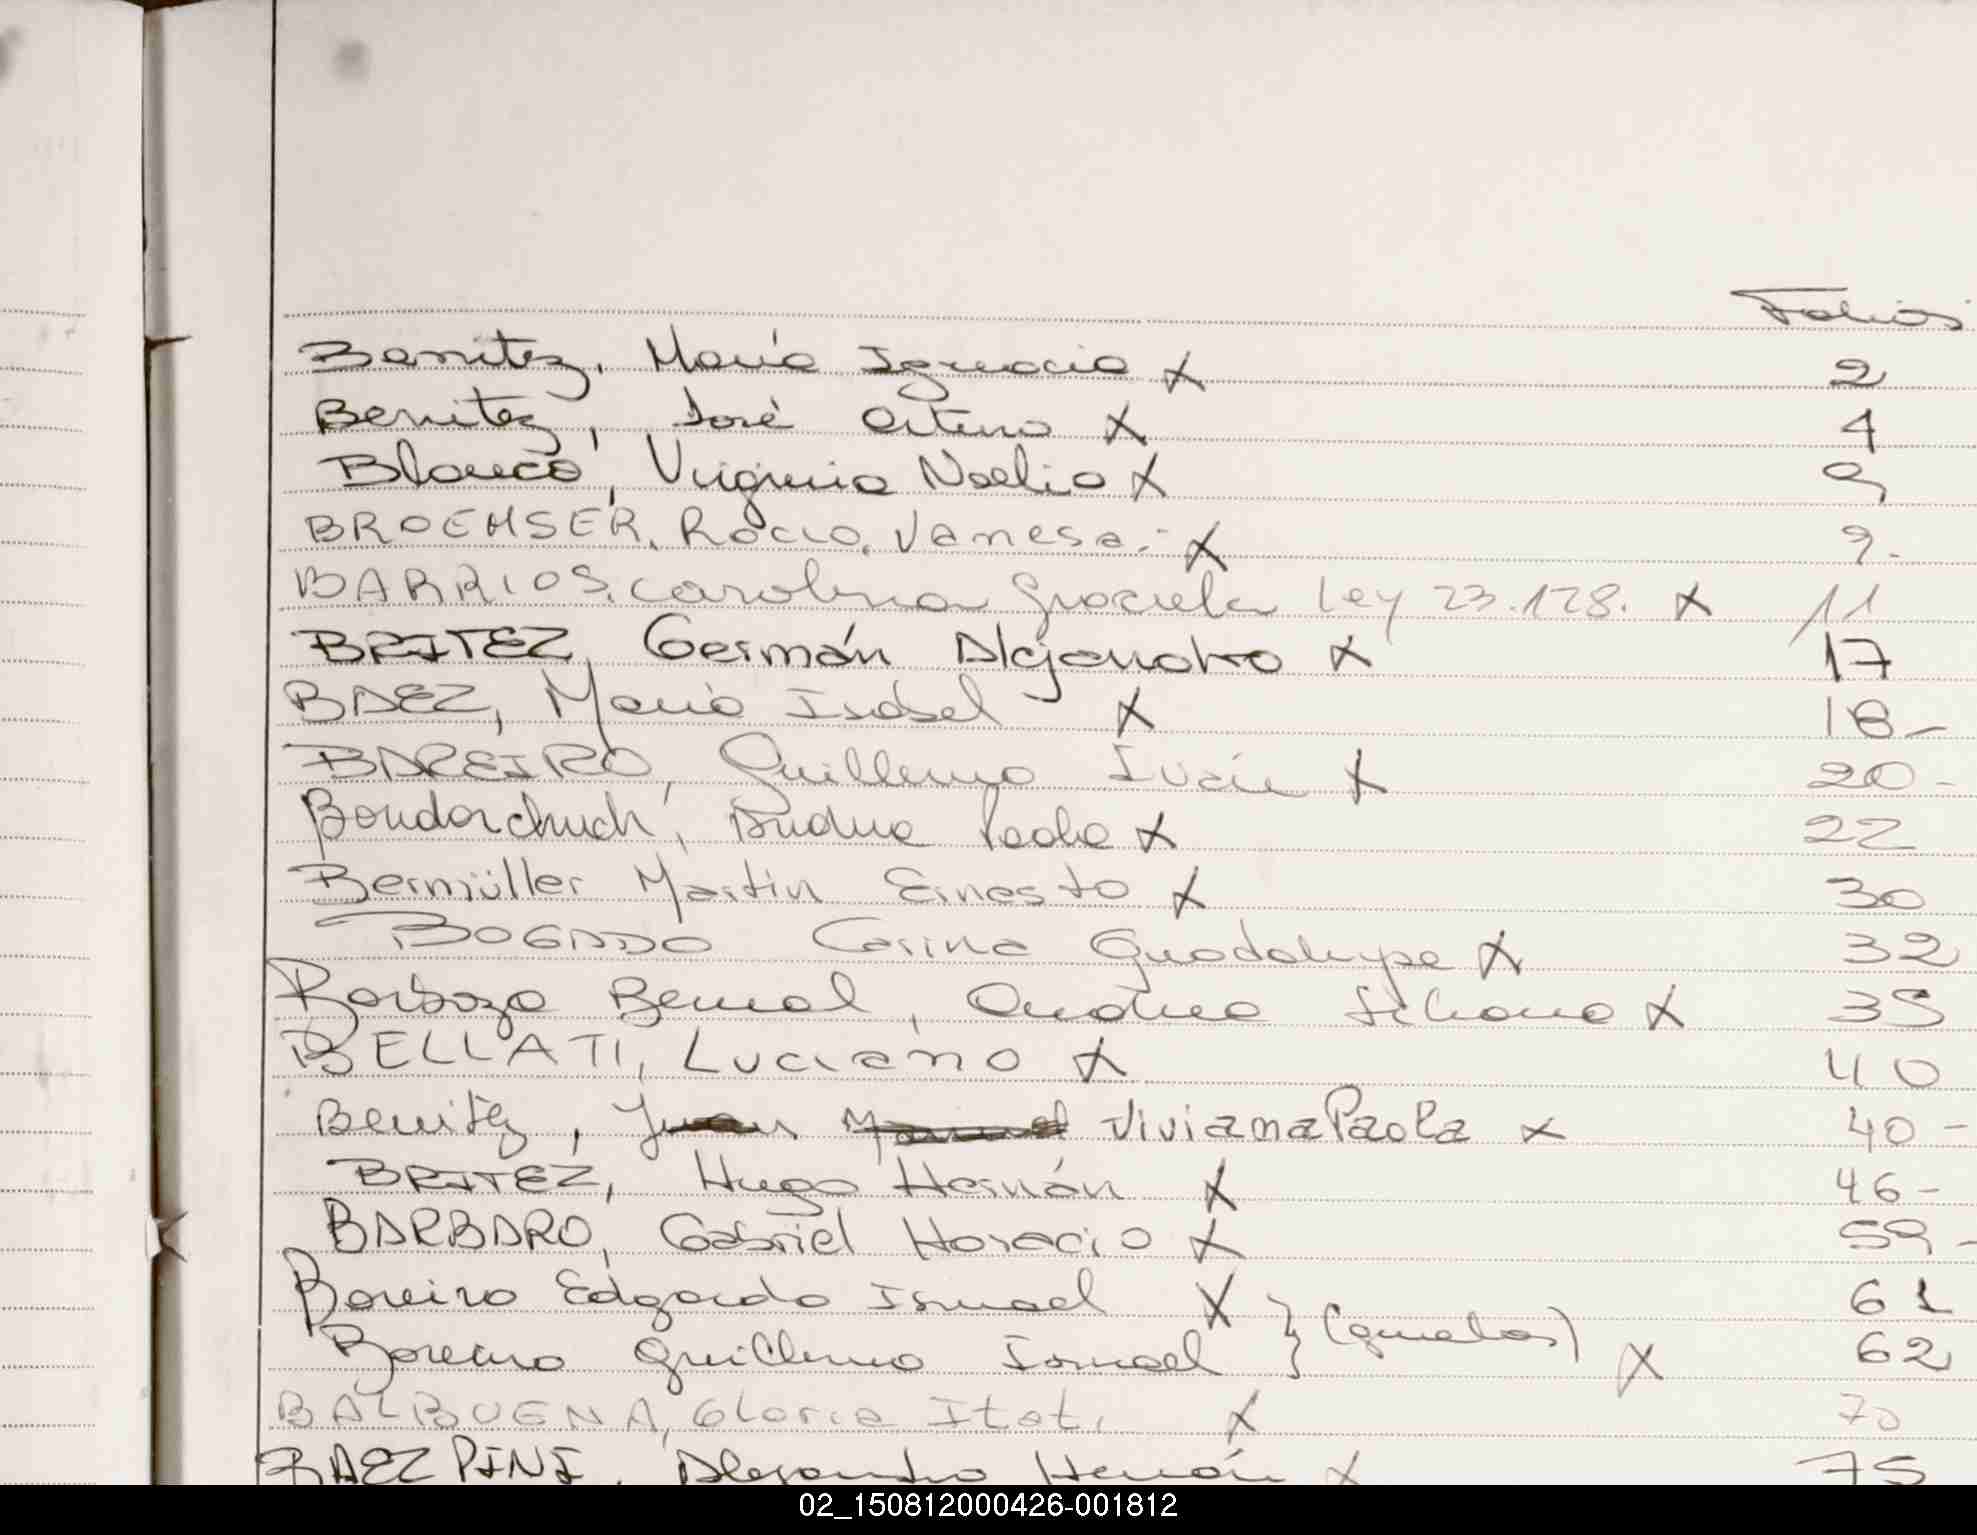 Folios
Benitez, María Ignacia X 2
Benitez, José Arturo X 4
Blanco, Virginia Noelia X 9
BROEMSER, Rocio, Vanesa.- X 9.
BARRIOS, Carolina Graciela Ley 23.128. X 11
BRITEZ, Germán Alejandro X 17
BAEZ, María Isabel X 18-
BAREIRO, Guillermo Iván X 20-
Bondarchuck, Andrea Paola X 22
Bermüller Martin Ernesto X 30
BOGADO Carina Guadalupe X 32
Barboza Bernal, Andrea Silvana X 35
BELLATI, Luciano X 40
Benitez, Juan Manuel Viviana Paola X 40-
BRITEZ, Hugo Hernán X 46-
BARBARO, Gabriel Horacio X 59-
Boreiro Edgardo Ismael X 61
Boreiro Guillermo Ismael } (gemelos) X 62
BALBUENA, Gloria Itati X 70
BAEZ PINI, Alejandro Hernán X 75
02_150812000426-001812